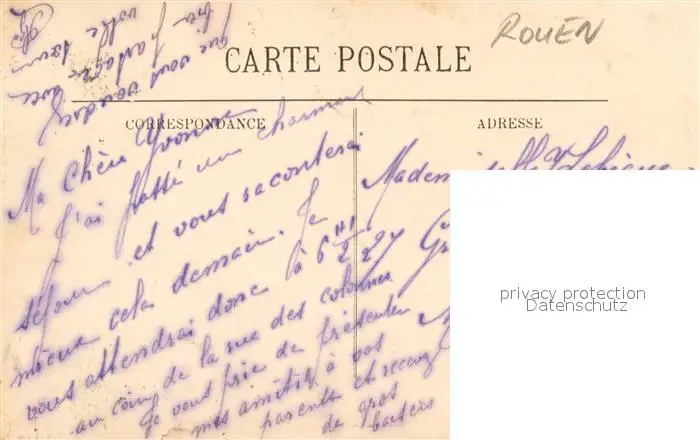 ROUEN
CARTE POSTALE
CORRESPONDANCE
ADRESSE
Ma chère Yvonne
J'ai passé un charmant
séjour et vous raconterai
mieux cela demain. Je
vous attendrai donc à 6 h 1/2
au coin de la rue des colonnes
Je vous prie de présenter
mes amitiés à vos
parents et recevez
de gros
baisers
que vous voudrez
bien partager avec
votre sœur
Mademoiselle
27
privacy protection
Datenschutz